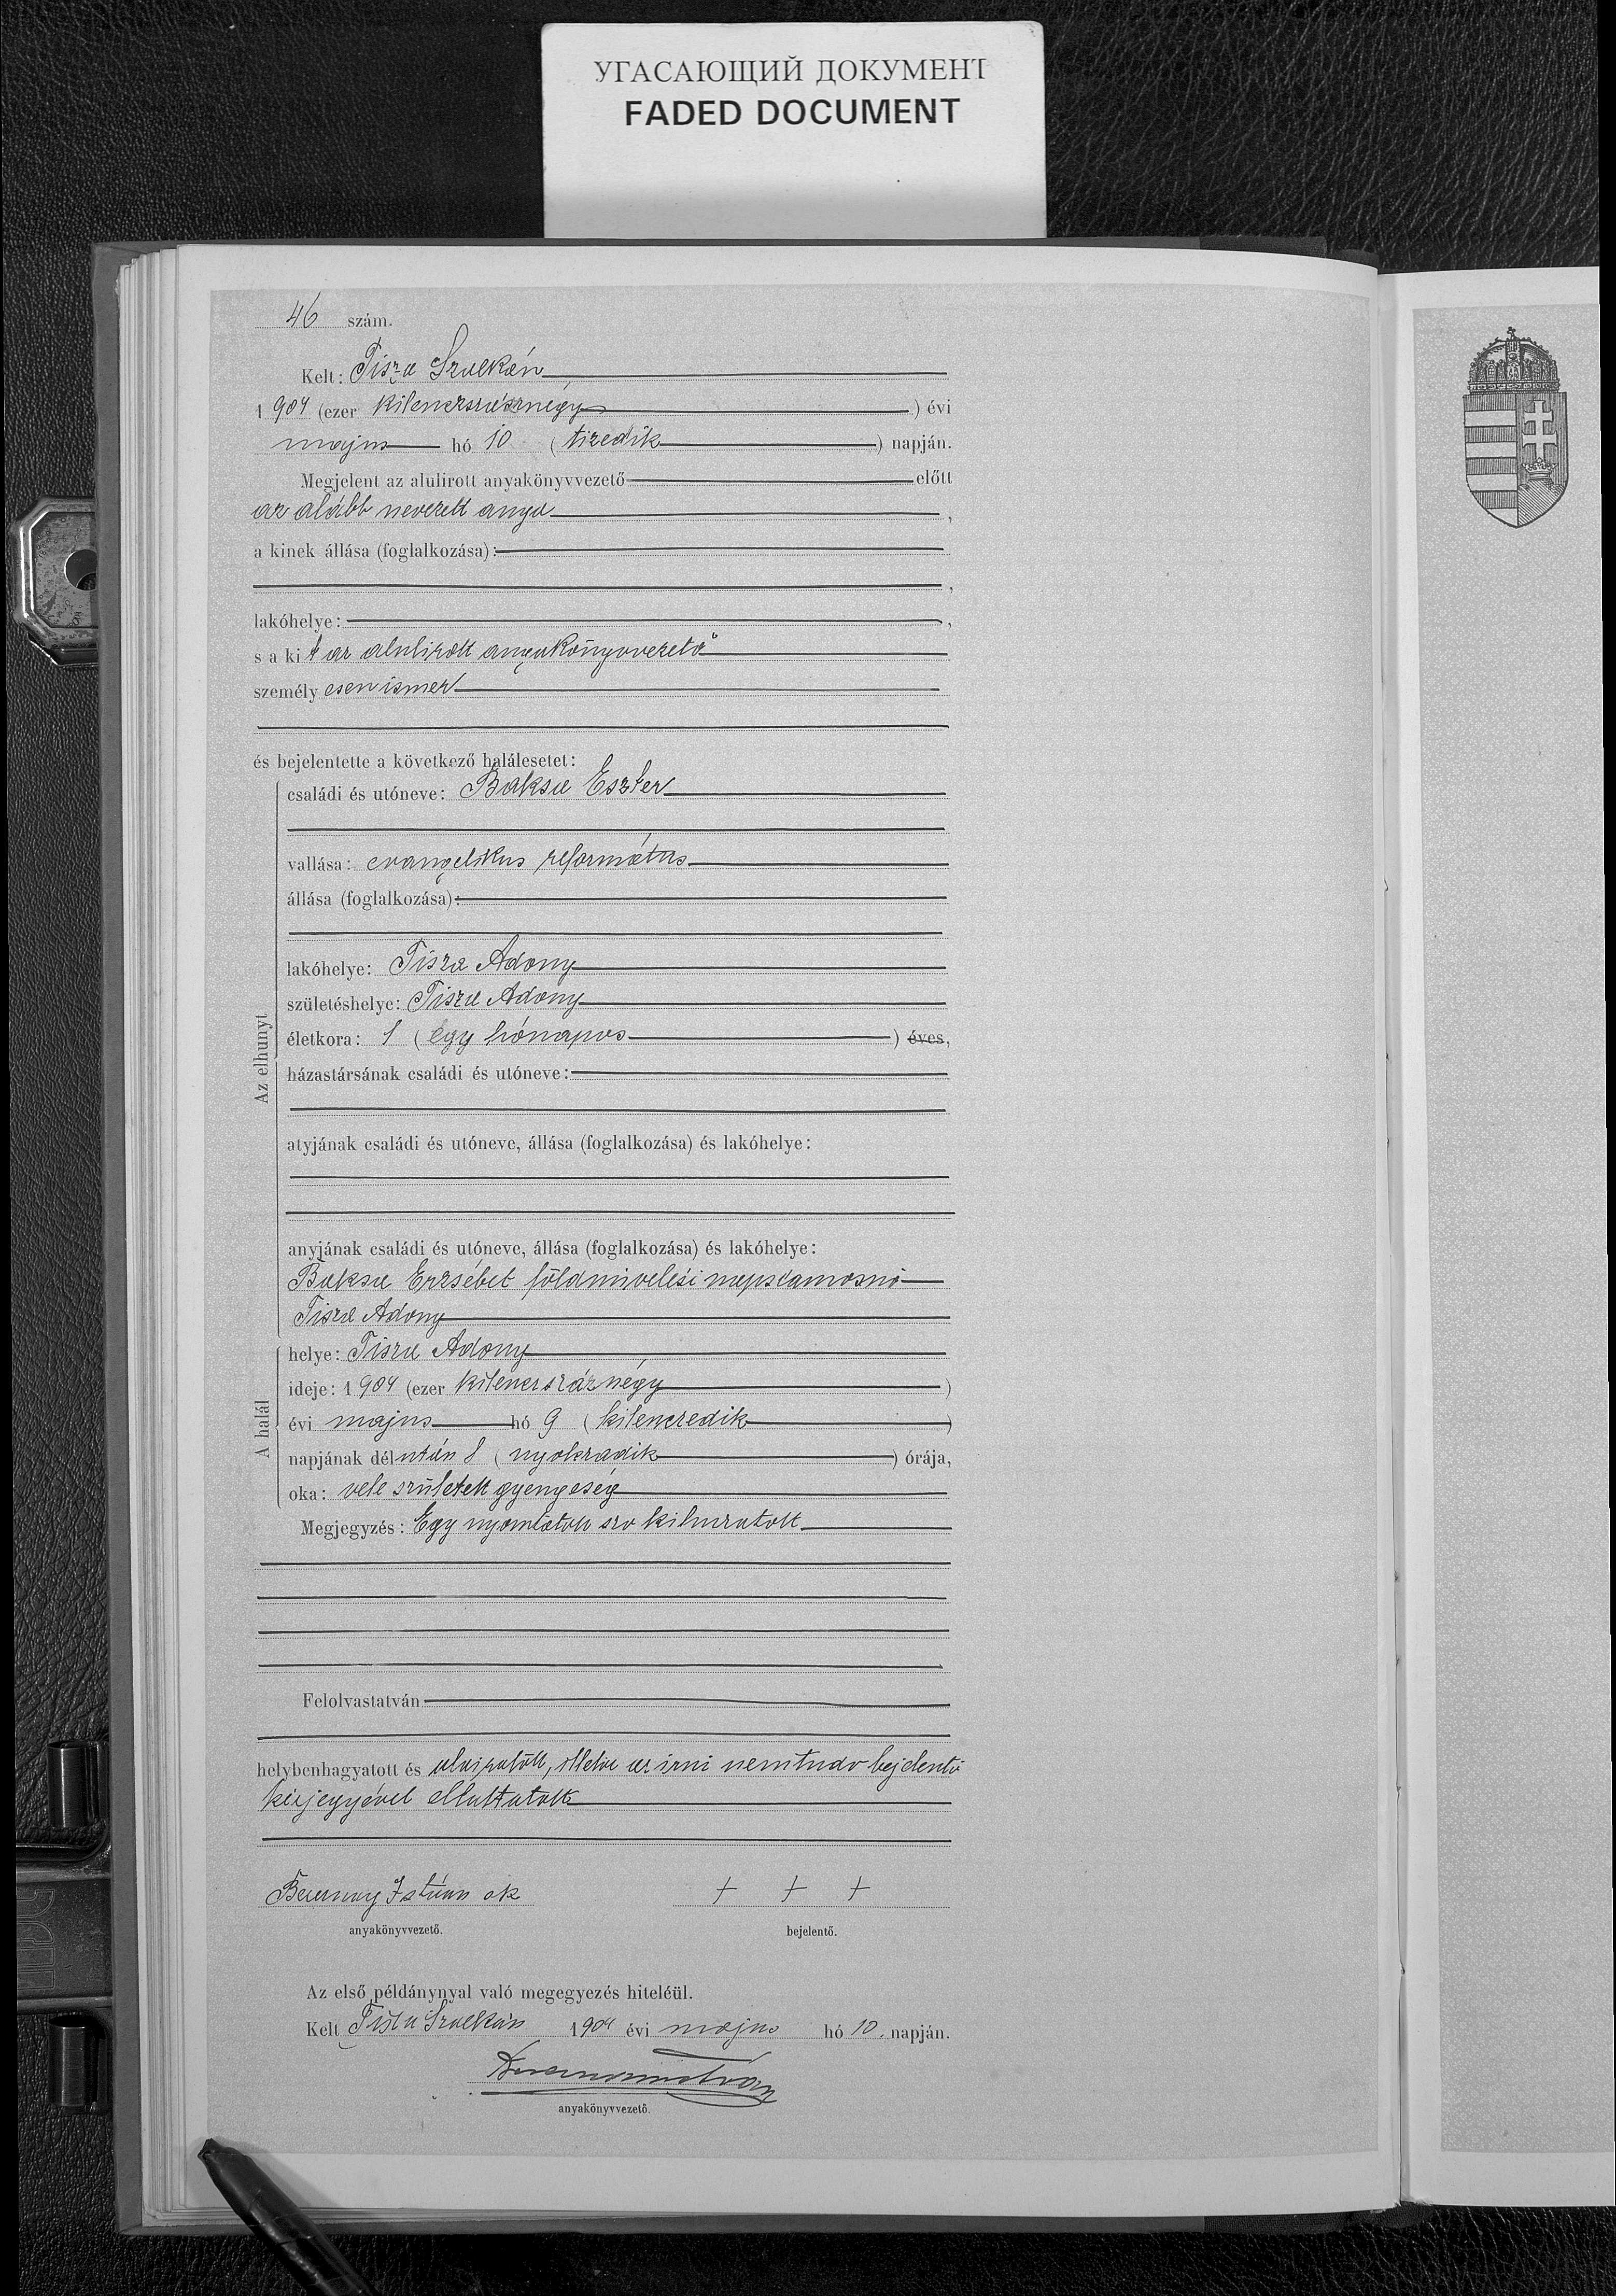 УГАСАЮЩИЙ ДОКУМЕНТ
FADED DOCUMENT
46 szám.
Kelt: Tisza Szalkán
1 904 (ezer kilenczszáznégy ) évi
majus hó 10 ( tizedik ) napján.
Megjelent az alulirott anyakönyvvezető előtt
az alább nevezett anya ,
a kinek állása (foglalkozása):
,
lakóhelye: ,
s a ki t az alulirott anyakönyvvezető
személy esen ismer
és bejelentette a következő halálesetet:
Az elhunyt
családi és utóneve: Baksa Eszter
vallása: evangelikus református
állása (foglalkozása):
lakóhelye: Tisza Adony
születéshelye: Tisza Adony
életkora: 1 ( egy hónapos ) éves,
házastársának családi és utóneve:
atyjának családi és utóneve, állása (foglalkozása) és lakóhelye:
anyjának családi és utóneve, állása (foglalkozása) és lakóhelye:
Baksa Erzsébet földmivelési napszamosnő
Tisza Adony
A halál
helye: Tisza Adony
ideje: 1 904 (ezer kilenczszáznégy )
évi majus hó 9 ( kilenczedik )
napjának dél után 8 ( nyolczadik ) órája,
oka: vele született gyengeség
Megjegyzés: Egy nyomtatott szo kihuzatott
Felolvastatván
helybenhagyatott és aláiratott, illetve az irni nem tudo bejelentő
kézjegyével elláttatott
István ak + + +
anyakönyvvezető. bejelentő.
Az első példánynyal való megegyezés hiteléül.
Kelt Tisza Szalkán 1904 évi majus hó 10. napján.
anyakönyvvezető.